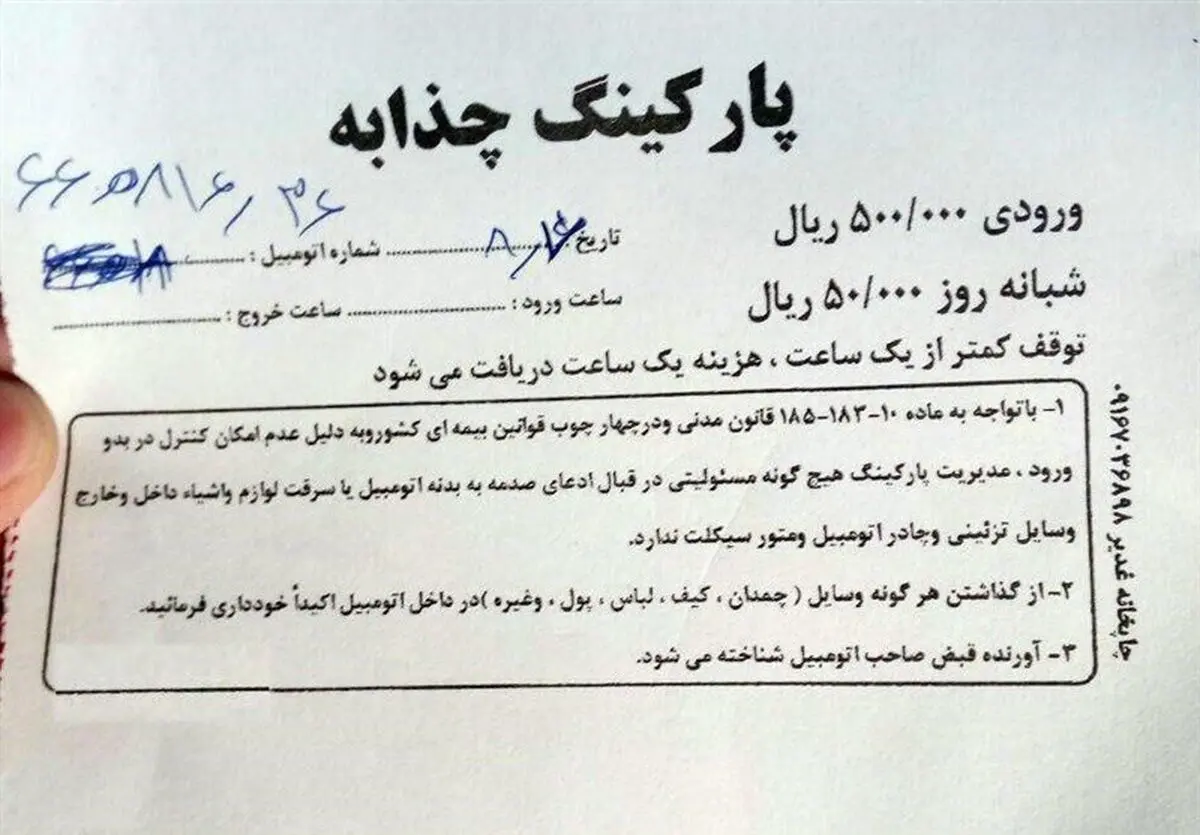 پارکینگ چذابه
ورودی ۵۰۰/۰۰۰ ریال
شبانه روز ۵۰/۰۰۰ ریال
تاریخ ........ شماره اتومبیل : ........
ساعت ورود : ........ ساعت خروج : ........
توقف کمتر از یک ساعت ، هزینه یک ساعت دریافت می شود
۱- باتواجه به ماده ۱۰-۱۸۳-۱۸۵ قانون مدنی ودرچهار چوب قوانین بیمه ای کشوروبه دلیل عدم امکان کنترل در بدو
ورود ، مدیریت پارکینگ هیچ گونه مسئولیتی در قبال ادعای صدمه به بدنه اتومبیل یا سرقت لوازم واشیاء داخل وخارج
وسایل تزئینی وچادر اتومبیل ومتور سیکلت ندارد.
۲- از گذاشتن هر گونه وسایل ( چمدان ، کیف ، لباس ، پول ، وغیره )در داخل اتومبیل اکیداً خودداری فرمائید.
۳- آورنده قبض صاحب اتومبیل شناخته می شود.
چاپخانه غدیر ۰۹۱۶۷۰۳۶۸۹۸